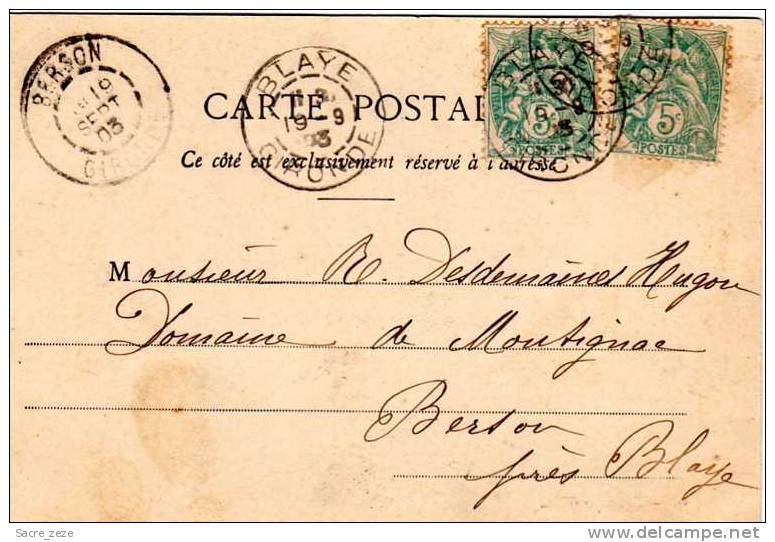 BERSON
19
SEPT
03
GIRONDE
BLAYE
19-9
03
GIRONDE
BLAYE
19 9
03
GIRONDE
5c
POSTES
5c
POSTES
CARTE POSTAL
Ce côté est exclusivement réservé à l'adresse
Monsieur R. Desdemaines Hugon
Domaine de Montignac
Berson
près Blaye
Sacre_zeze
http://www.delcampe.net